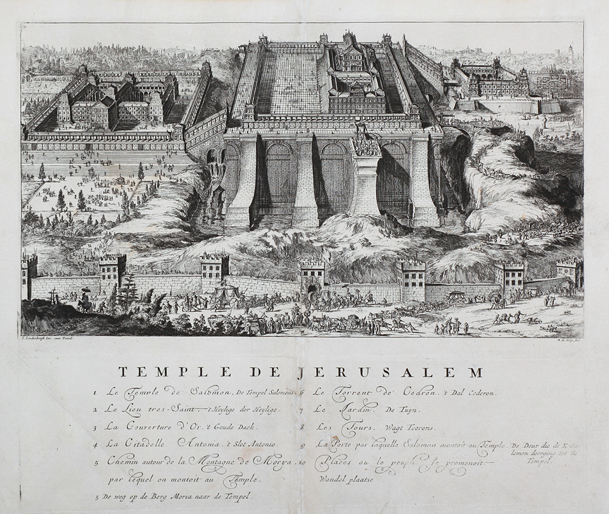 TEMPLE DE JERUSALEM
1 Le Temple de Salomon. De Tempel Salomons
2 Le Lieu tres-Saint 't Heylige der Heylige.
3 La Couverture d'Or. 't Goude Dack.
4 La Citadelle Antonia. 't Slot Antonio
5 Chemin autour de la Montagne de Morya
par lequel on montoit au Temple.
5 De weg op de Berg Morya naar de Tempel.
6 Le Torrent de Cedron. 't Dal Cederon.
7 Le Jardin De Tuyn.
8 Les Tours. Wagt Toorens.
9 La Porte par laquelle Salomon montoit au Temple. De Deur die de K: Salomon doorging tot de Tempel.
10 Places ou le peuple se promenoit
Wandel plaatse